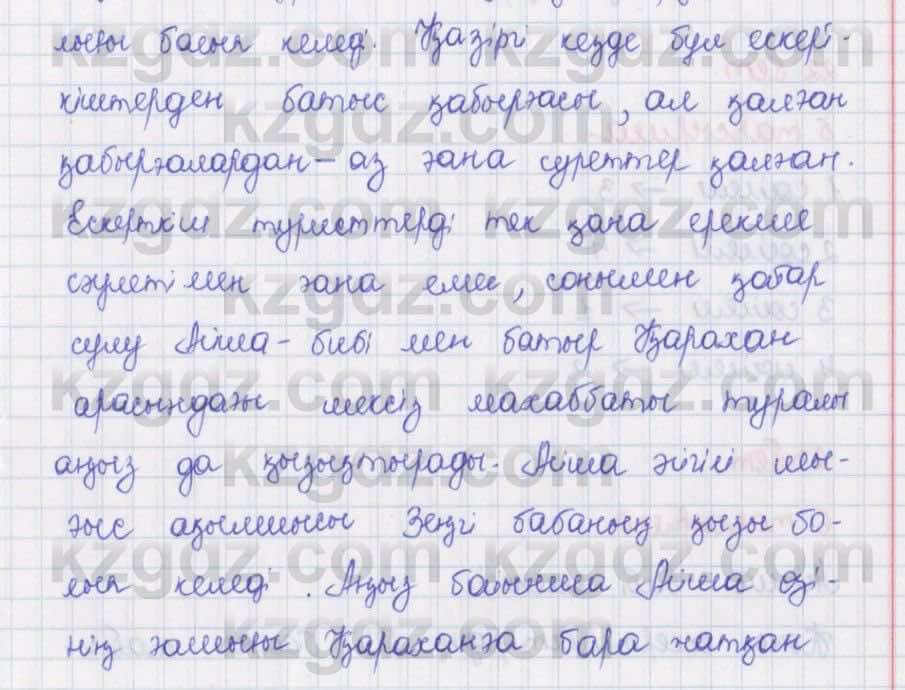 лысы басып келеді. Қазіргі кезде бұл ескерт-
кіштерден батыс қабырғасы, ал қалған
қабырғалардан - аз ғана суреттер қалған.
Ескерткіш туристтерді тек қана ерекше
сәулетімен ғана емес, сонымен қабар
сулу Айша-бибі мен батыр Қарахан
арасындағы шексіз махаббаты туралы
аңыз да қызықтырады. Айша әйгілі шы-
ғыс ақылшысы Зеңгі бабаның қызы бо-
лып келеді. Аңыз бойынша Айша өзі-
нің ғашығы Қараханға бара жатқан
kzgdz.com